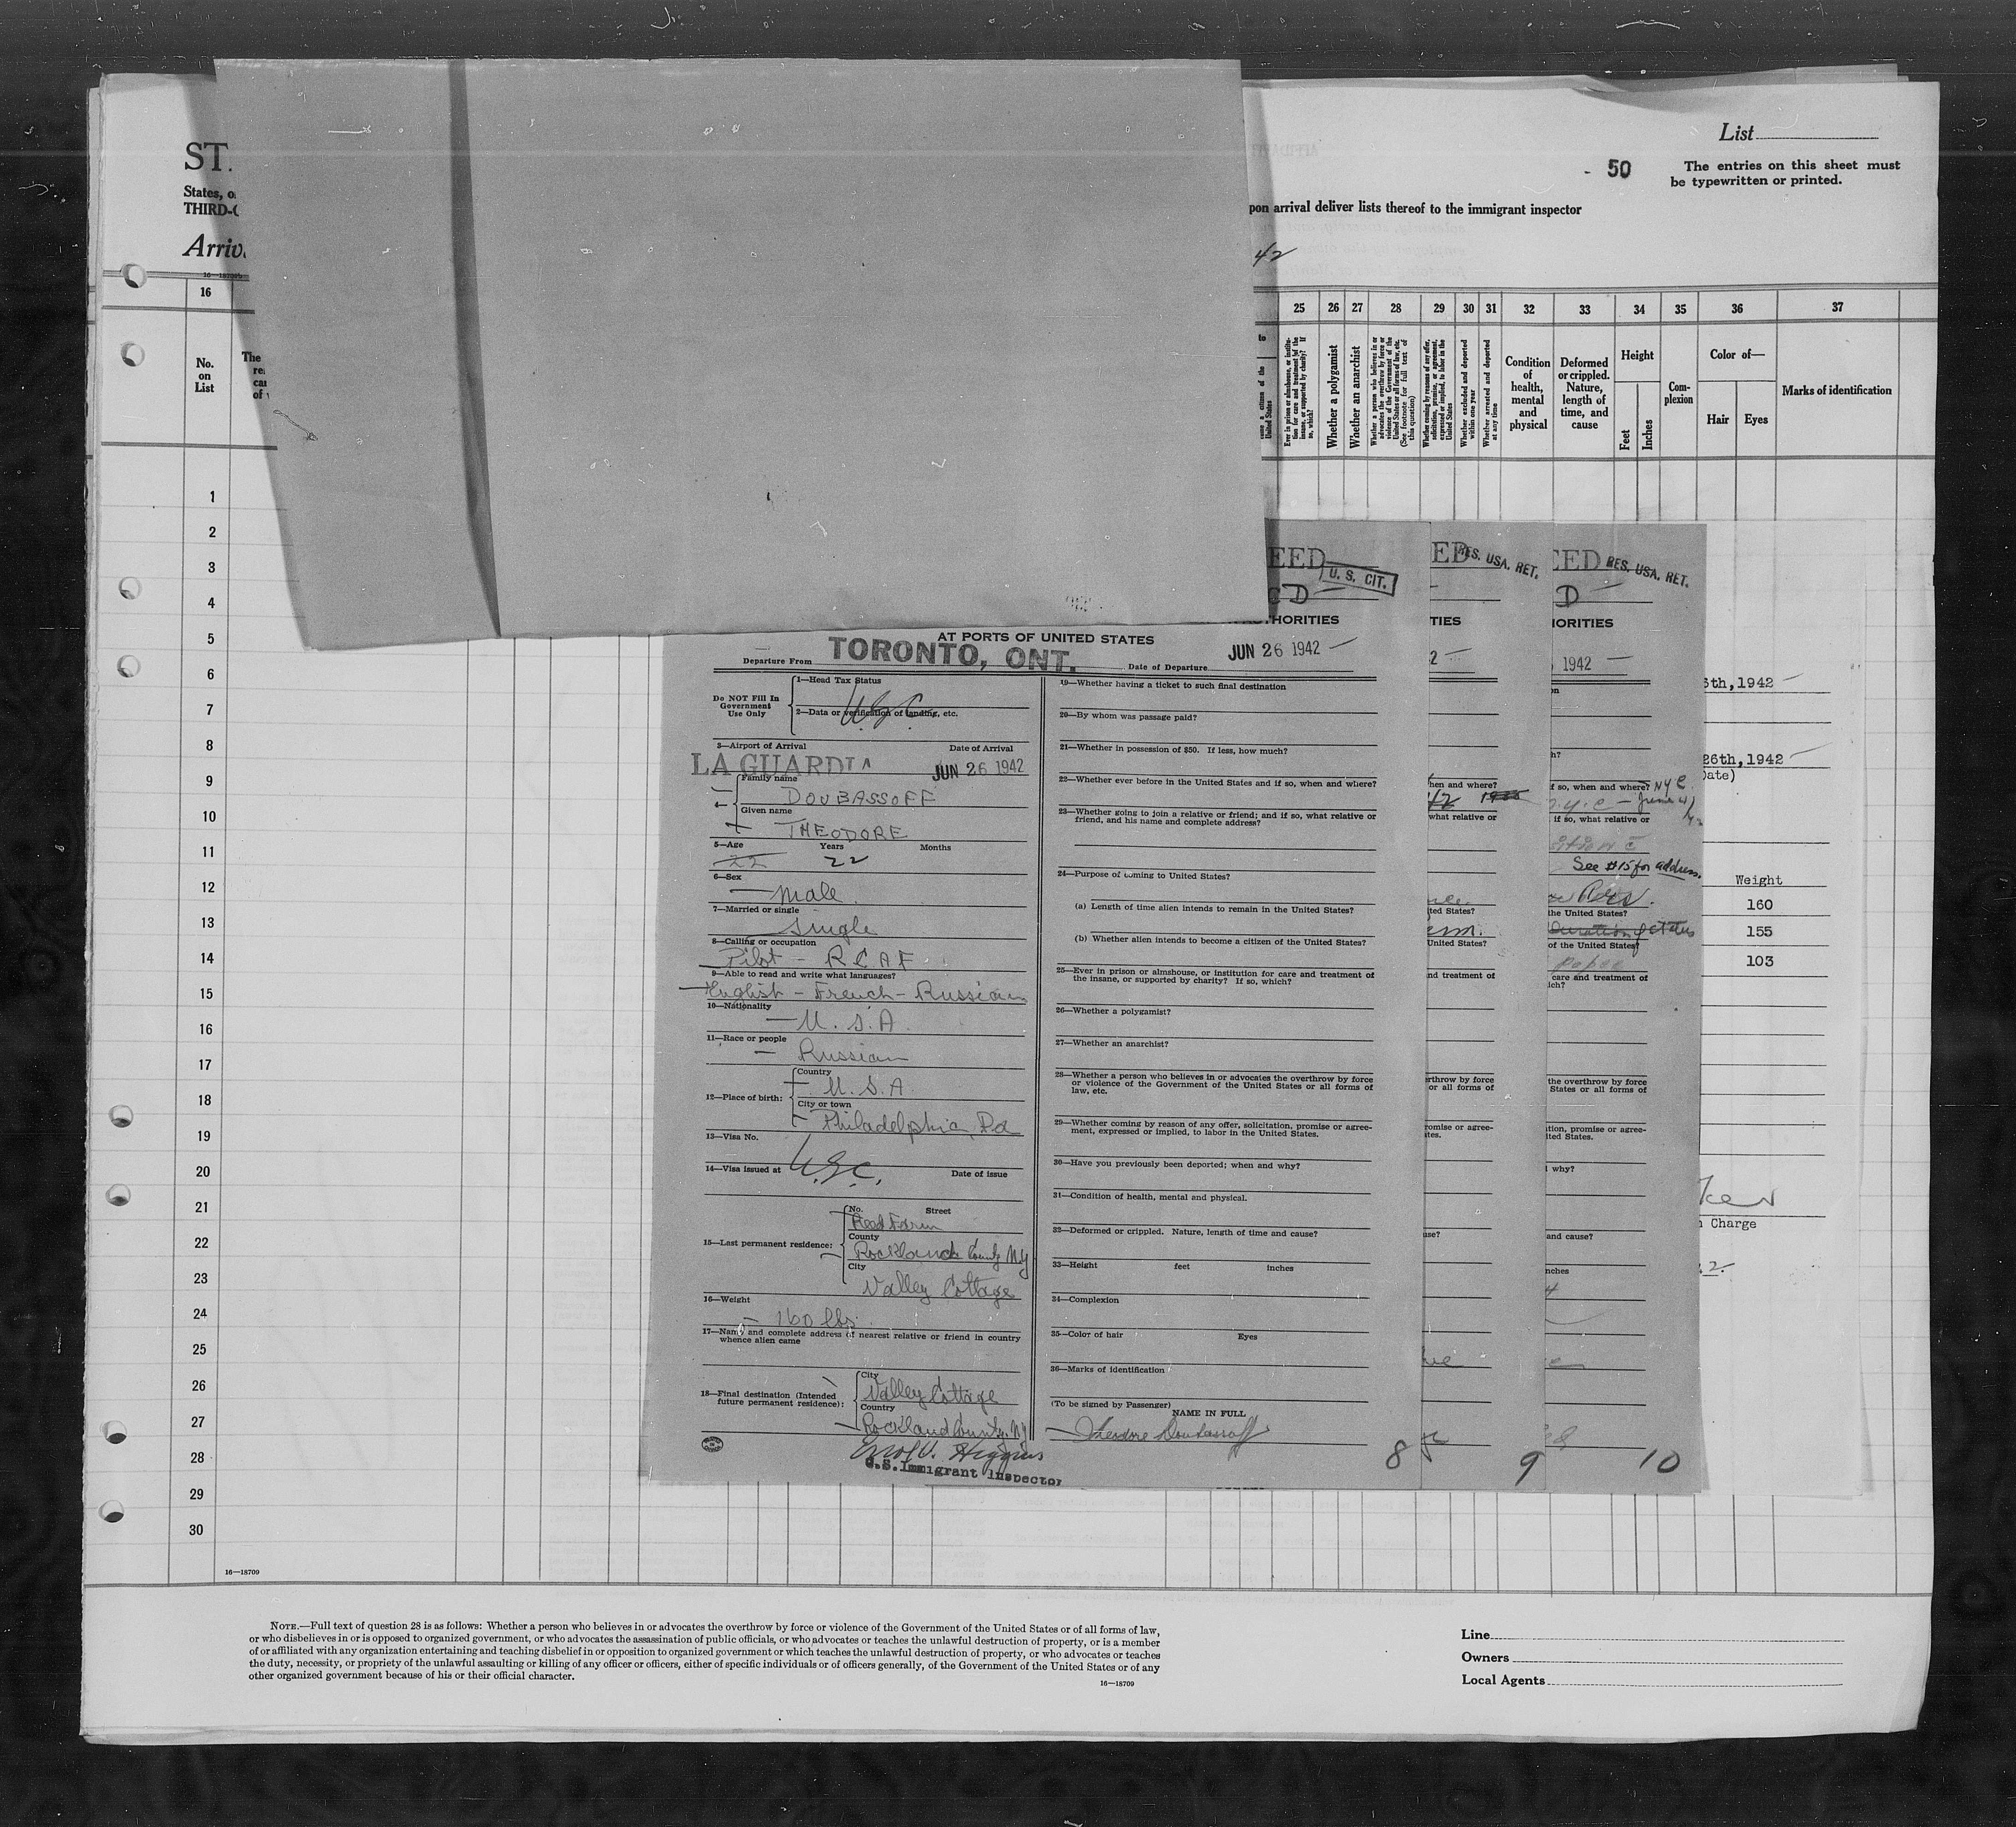 ST.
States, o
THIRD-C
Arriv
16—18709
List
- 50
The entries on this sheet must
be typewritten or printed.
pon arrival deliver lists thereof to the immigrant inspector
42
16
25 26 27 28 29 30 31 32 33 34 35 36 37
No.
on
List
The
re
car
of
to
United States
Ever in prison or almshouse, or institution for care and treatment of the insane, or supported by charity? If so, which?
Whether a polygamist
Whether an anarchist
Whether a person who believes in or advocates the overthrow by force or violence of the Government of the United States or all forms of law, etc. (See footnote for full text of this question)
Whether coming by reasons of any offer, solicitation, promise, or agreement, expressed or implied, to labor in the United States
Whether excluded and deported within one year
Whether arrested and deported at any time
Condition
of
health,
mental
and
physical
Deformed
or crippled.
Nature,
length of
time, and
cause
Height
Feet
Inches
Com-
plexion
Color of—
Hair
Eyes
Marks of identification
1
2
3
4
5
6
7
8
9
10
11
12
13
14
15
16
17
18
19
20
21
22
23
24
25
26
27
28
29
30
16—18709
EED
U. S. CIT.
CD
HORITIES
AT PORTS OF UNITED STATES
Departure From TORONTO, ONT. Date of Departure JUN 26 1942
Do NOT Fill In
Government
Use Only
1—Head Tax Status
2—Data or verification of landing, etc.
3—Airport of Arrival Date of Arrival
LA GUARDIA JUN 26 1942
Family name
DOUBASSOFF
Given name
THEODORE
5—Age Years Months
22 22
6—Sex
Male
7—Married or single
Single
8—Calling or occupation
Pilot - RCAF
9—Able to read and write what languages?
English - French - Russian
10—Nationality
U.S.A.
11—Race or people
Russian
12—Place of birth:
Country
U.S.A.
City or town
Philadelphia, Pa
13—Visa No.
14—Visa issued at Date of issue
15—Last permanent residence:
No. Street
Reed Farm
County
Rockland County N.Y
City
Valley Cottage
16—Weight
160 lbs.
17—Name and complete address of nearest relative or friend in country
whence alien came
18—Final destination (Intended
future permanent residence):
City
Valley Cottage
Country
Rockland County, N.Y
Higgins
U.S. Immigrant Inspector
19—Whether having a ticket to such final destination
20—By whom was passage paid?
21—Whether in possession of $50. If less, how much?
22—Whether ever before in the United States and if so, when and where?
23—Whether going to join a relative or friend; and if so, what relative or
friend, and his name and complete address?
24—Purpose of coming to United States?
(a) Length of time alien intends to remain in the United States?
(b) Whether alien intends to become a citizen of the United States?
25—Ever in prison or almshouse, or institution for care and treatment of
the insane, or supported by charity? If so, which?
26—Whether a polygamist?
27—Whether an anarchist?
28—Whether a person who believes in or advocates the overthrow by force
or violence of the Government of the United States or all forms of
law, etc.
29—Whether coming by reason of any offer, solicitation, promise or agree-
ment, expressed or implied, to labor in the United States.
30—Have you previously been deported; when and why?
31—Condition of health, mental and physical.
32—Deformed or crippled. Nature, length of time and cause?
33—Height feet inches
34—Complexion
35—Color of hair Eyes
36—Marks of identification
(To be signed by Passenger)
NAME IN FULL
Theodore Doubassoff
8
ED
RES. USA. RET.
TIES
2
hen and where?
42
what relative or
ited States?
United States?
nd treatment of
erthrow by force
or all forms of
romise or agree-
tes.
use?
9
CED
RES. USA. RET.
D
HORITIES
1942
on
h?
f so, when and where? NYC
n.y.c - June 41
if so, what relative or
See #15 for address.
the United States?
Duration of status
of the United States?
care and treatment of
ich?
the overthrow by force
States or all forms of
tion, promise or agree-
ited States.
why?
and cause?
nches
10
6th,1942
26th,1942
Date)
Weight
160
155
103
n Charge
NOTE.—Full text of question 28 is as follows: Whether a person who believes in or advocates the overthrow by force or violence of the Government of the United States or of all forms of law,
or who disbelieves in or is opposed to organized government, or who advocates the assassination of public officials, or who advocates or teaches the unlawful destruction of property, or is a member
of or affiliated with any organization entertaining and teaching disbelief in or opposition to organized government or which teaches the unlawful destruction of property, or who advocates or teaches
the duty, necessity, or propriety of the unlawful assaulting or killing of any officer or officers, either of specific individuals or of officers generally, of the Government of the United States or of any
other organized government because of his or their official character.
16—18709
Line
Owners
Local Agents